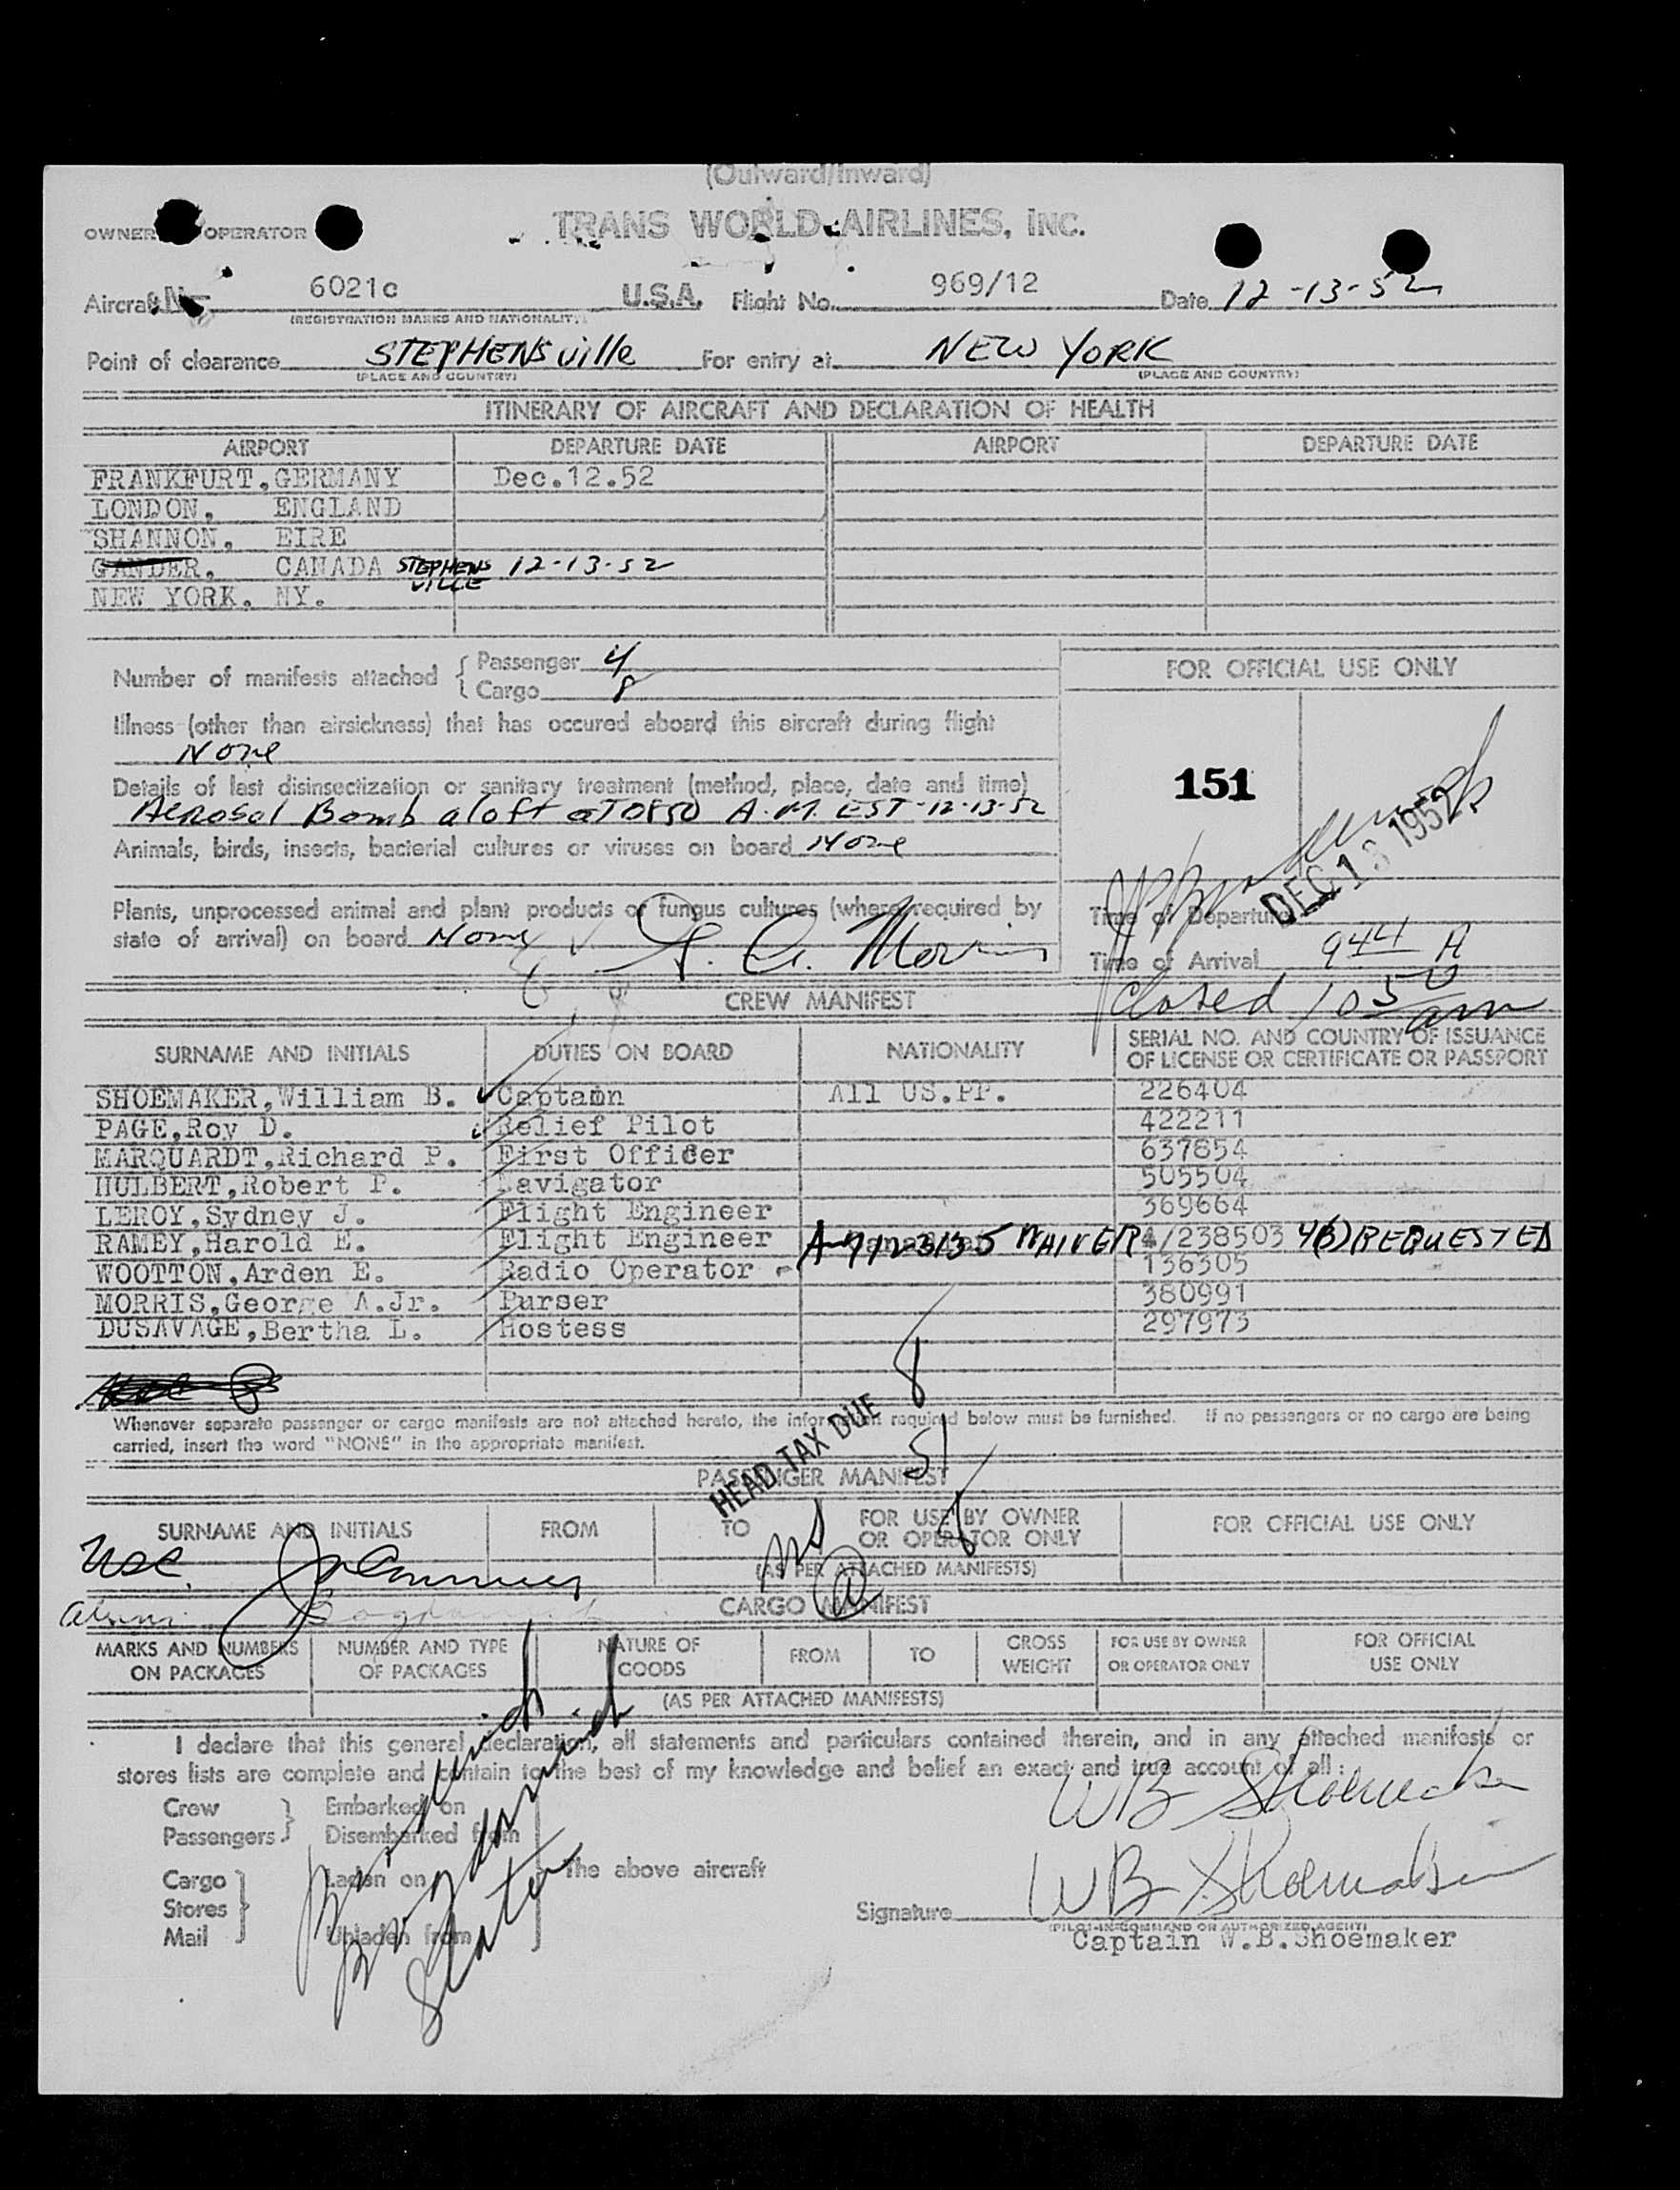 (Outward/Inward)
OWNER OPERATOR TRANS WORLD AIRLINES, INC.
Aircraft N- 6021c U.S.A. Flight No. 969/12 Date 12-13-52
(REGISTRATION MARKS AND NATIONALITY)
Point of clearance STEPHENSville For entry at NEW YORK
(PLACE AND COUNTRY) (PLACE AND COUNTRY)
ITINERARY OF AIRCRAFT AND DECLARATION OF HEALTH
AIRPORT DEPARTURE DATE AIRPORT DEPARTURE DATE
FRANKFURT,GERMANY Dec.12.52
LONDON, ENGLAND
SHANNON, EIRE
GANDER, CANADA STEPHENS VILLE 12-13-52
NEW YORK. NY.
Number of manifests attached { Passenger 4
Cargo 8
FOR OFFICIAL USE ONLY
Illness (other than airsickness) that has occured aboard this aircraft during flight
None
151
Details of last disinsectization or sanitary treatment (method, place, date and time)
Aerosol Bomb aloft at 0850 A.M. EST-12-13-52
DEC 13 1952
Animals, birds, insects, bacterial cultures or viruses on board None
Plants, unprocessed animal and plant products or fungus cultures (where required by
state of arrival) on board None
Time of Departure
Time of Arrival 944 A
Closed 10 50 am
CREW MANIFEST
SURNAME AND INITIALS DUTIES ON BOARD NATIONALITY SERIAL NO. AND COUNTRY OF ISSUANCE
OF LICENSE OR CERTIFICATE OR PASSPORT
SHOEMAKER,William B. Captain All US.PP. 226404
PAGE,Roy D. Relief Pilot 422211
MARQUARDT,Richard P. First Officer 637854
HULBERT,Robert P. Navigator 505504
LEROY,Sydney J. Flight Engineer 369664
RAMEY,Harold E. Flight Engineer WAIVER 4/238503 4(B) REQUESTED
WOOTTON,Arden E. Radio Operator 136305
MORRIS,George A.Jr. Purser 380991
DUSAVAGE,Bertha L. Hostess 297973
Whenever separate passenger or cargo manifests are not attached hereto, the information required below must be furnished. If no passengers or no cargo are being
carried, insert the word "NONE" in the appropriate manifest.
HEAD TAX DUE 8
PASSENGER MANIFEST
SURNAME AND INITIALS FROM TO FOR USE BY OWNER OR OPERATOR ONLY FOR OFFICIAL USE ONLY
(AS PER ATTACHED MANIFESTS)
CARGO MANIFEST
MARKS AND NUMBERS ON PACKAGES NUMBER AND TYPE OF PACKAGES NATURE OF GOODS FROM TO GROSS WEIGHT FOR USE BY OWNER OR OPERATOR ONLY FOR OFFICIAL USE ONLY
(AS PER ATTACHED MANIFESTS)
I declare that this general declaration, all statements and particulars contained therein, and in any attached manifests or
stores lists are complete and contain to the best of my knowledge and belief an exact and true account of all:
WB Shoemaker
Crew } Embarked on
Passengers } Disembarked from
Cargo } Laden on The above aircraft
Stores
Mail Unladen from
Signature WB Shoemaker
(PILOT-IN-COMMAND OR AUTHORIZED AGENT)
Captain W.B.Shoemaker